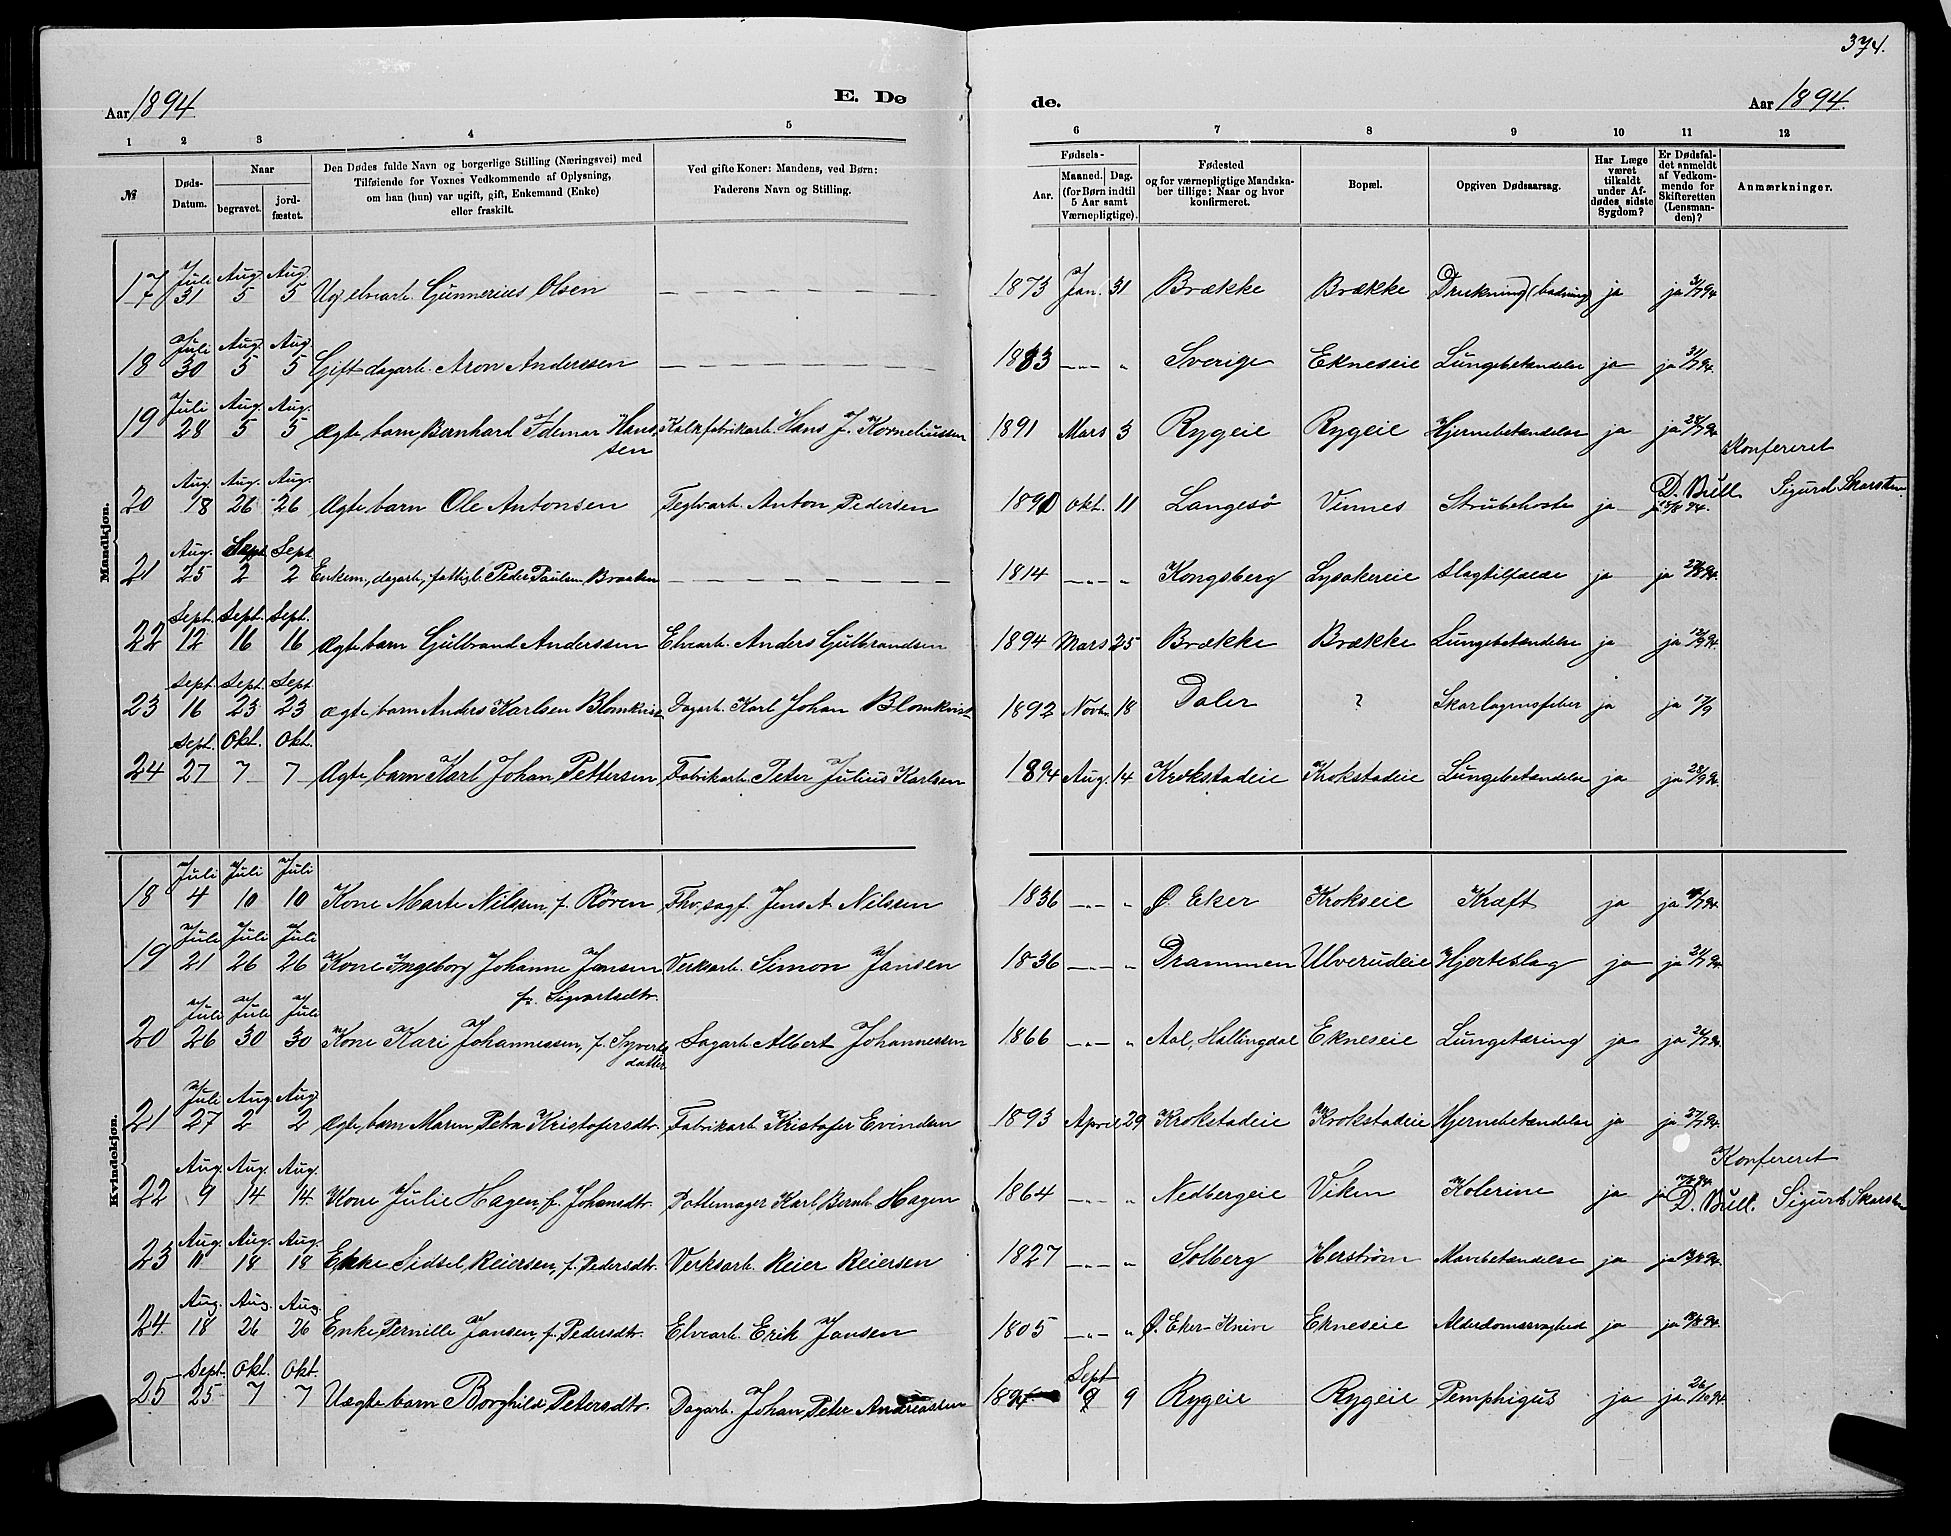 374.
Aar 1894 E. Dø de. Aar 1894.
1 2 3 4 5 6 7 8 9 10 11 12
№ Døds-Datum. Naar begravet. jordfæstet. Den Dødes fulde Navn og borgerlige Stilling (Næringsvei) med Tilføiende for Voxnes Vedkommende af Oplysning, om han (hun) var ugift, gift, Enkemand (Enke) eller fraskilt. Ved gifte Koner: Mandens, ved Børn: Faderens Navn og Stilling. Fødsels- Aar. Maaned. Dag. (for Børn indtil 5 Aar samt Værnepligtige). Fødested og for værnepligtige Mandskaber tillige: Naar og hvor konfirmeret. Bopæl. Opgiven Dødsaarsag. Har Læge været tilkaldt under Afdødes sidste Sygdom? Er Dødsfaldet anmeldt af Vedkommende for Skifteretten (Lensmanden)? Anmærkninger.
Mandkjøn.
17 Juli 31 Aug. 5 Aug. 5 Ug. elvearb. Gunnerius Olsen 1873 Jan. 31 Brække Brække Drukning (badning) ja ja 31/7 94
18 Juli 30 Aug. 5 Aug. 5 Gift dagarb. Aron Anderssen 1883 " Sverige Ekneseie Lungebetændelse ja ja 31/7 94.
19 Juli 28 Aug. 5 Aug. 5 Ægte barn Bernhard Idemar Hanssen Kalkfabrikarb. Hans J. Korneliussen 1891 Mars 3 Rygeie Rygeie Hjernebetændelse ja ja 28/7 94
Konfereret
20 Aug. 18 Aug. 26 Aug. 26 Ægte barn Ole Antonsen Teglvarb. Anton Pedersen 1890 Okt. 11 Langesö Vinnes Strubehoste ja ja 18/8 94. D. Bull Sigurd Skarsten
21 Aug. 25 Sept. 2 Sept. 2 Enkem., dagarb., fattigl. Peder Paulsen Braaten 1814 " Kongsberg Lysakereie Slagtilfælde ja ja 27/8 94.
22 Sept. 12 Sept. 16 Sept. 16 Ægte barn Gulbrand Anderssen Elvearb. Anders Gulbrandsen 1894 Mars 25 Brække Brække Lungebetændelse ja ja 12/9 94.
23 Sept. 16 Sept. 23 Sept. 23 Ægte barn Anders Karlsen Blomkvist Dagarb. Karl Johan Blomkvist 1892 Novb. 18 Daler ? Skarlagensfeber ja ja 17/9
24 Sept. 27 Okt. 7 Okt. 7 Ægte barn Karl Johan Pettersen Fabrikarb. Peter Julius Karlsen 1894 Aug. 14 Krokstadeie Krokstadeie Lungebetændelse ja ja 28/9 94.
Kvindekjøn.
18 Juli 4 Juli 10 Juli 10 Kone Marte Nilssen, f. Rören Fhv. sagf. Jens A Nilssen 1836 " Ö. Eker Krokseie Kræft ja ja
19 Juli 21 Juli 26 Juli 26 Kone Ingeborg Johanne Jansen fx. Sigvartsdtr. Verksarb. Simon Jansen 1836 " Drammen Ulverudeie Hjerteslag ja ja 21/7 94
20 Juli 26 Juli 30 Juli 30 Kone Kari Johannessen, f. Syvertsdatter Sagarb. Albert Johannessen 1866 " Aal, Hallingdal Ekneseie Lungetæring ja ja 26/7 94.
21 Juli 27 Aug. 2 Aug. 2 Ægte barn Maren Petra Kristofersdtr. Fabrikarb. Kristofer Evindsen 1893 April 29 Krokstadeie Krokstadeie Hjernebetændelse ja ja 27/7 94.
Konfereret
22 Aug. 9 Aug. 14 Aug. 14 Kone Julie Hagen, f. Johansdtr. Pottemager Karl Bernh. Hagen 1864 " Nedbergeie Viken Kolerine ja ja D. Bull. Sigurd Skarsten
23 Aug. 11 Aug. 18 Aug. 18 Enke Sidsel Reiersen, f. Pedersdtr. Verksarb. Reier Reiersen 1827 " Solberg Herström Mavebetændelse ja ja 13/8 94.
24 Aug. 18 Aug. 26 Aug. 26 Enke Pernille Jansen, f. Pedersdtr. Elvearb. Erik Jansen 1805 " Ö. Eker-Knive Ekneseie Alderdomssvaghed ja ja
25 Sept. 25 Okt. 7 Okt. 7 Uægte barn Borghild Petersdtr. Dagarb. Johan Peter Andreassen 1894 Sept 9 Rygeie Rygeie Pemphigus ja ja 26/10 94.